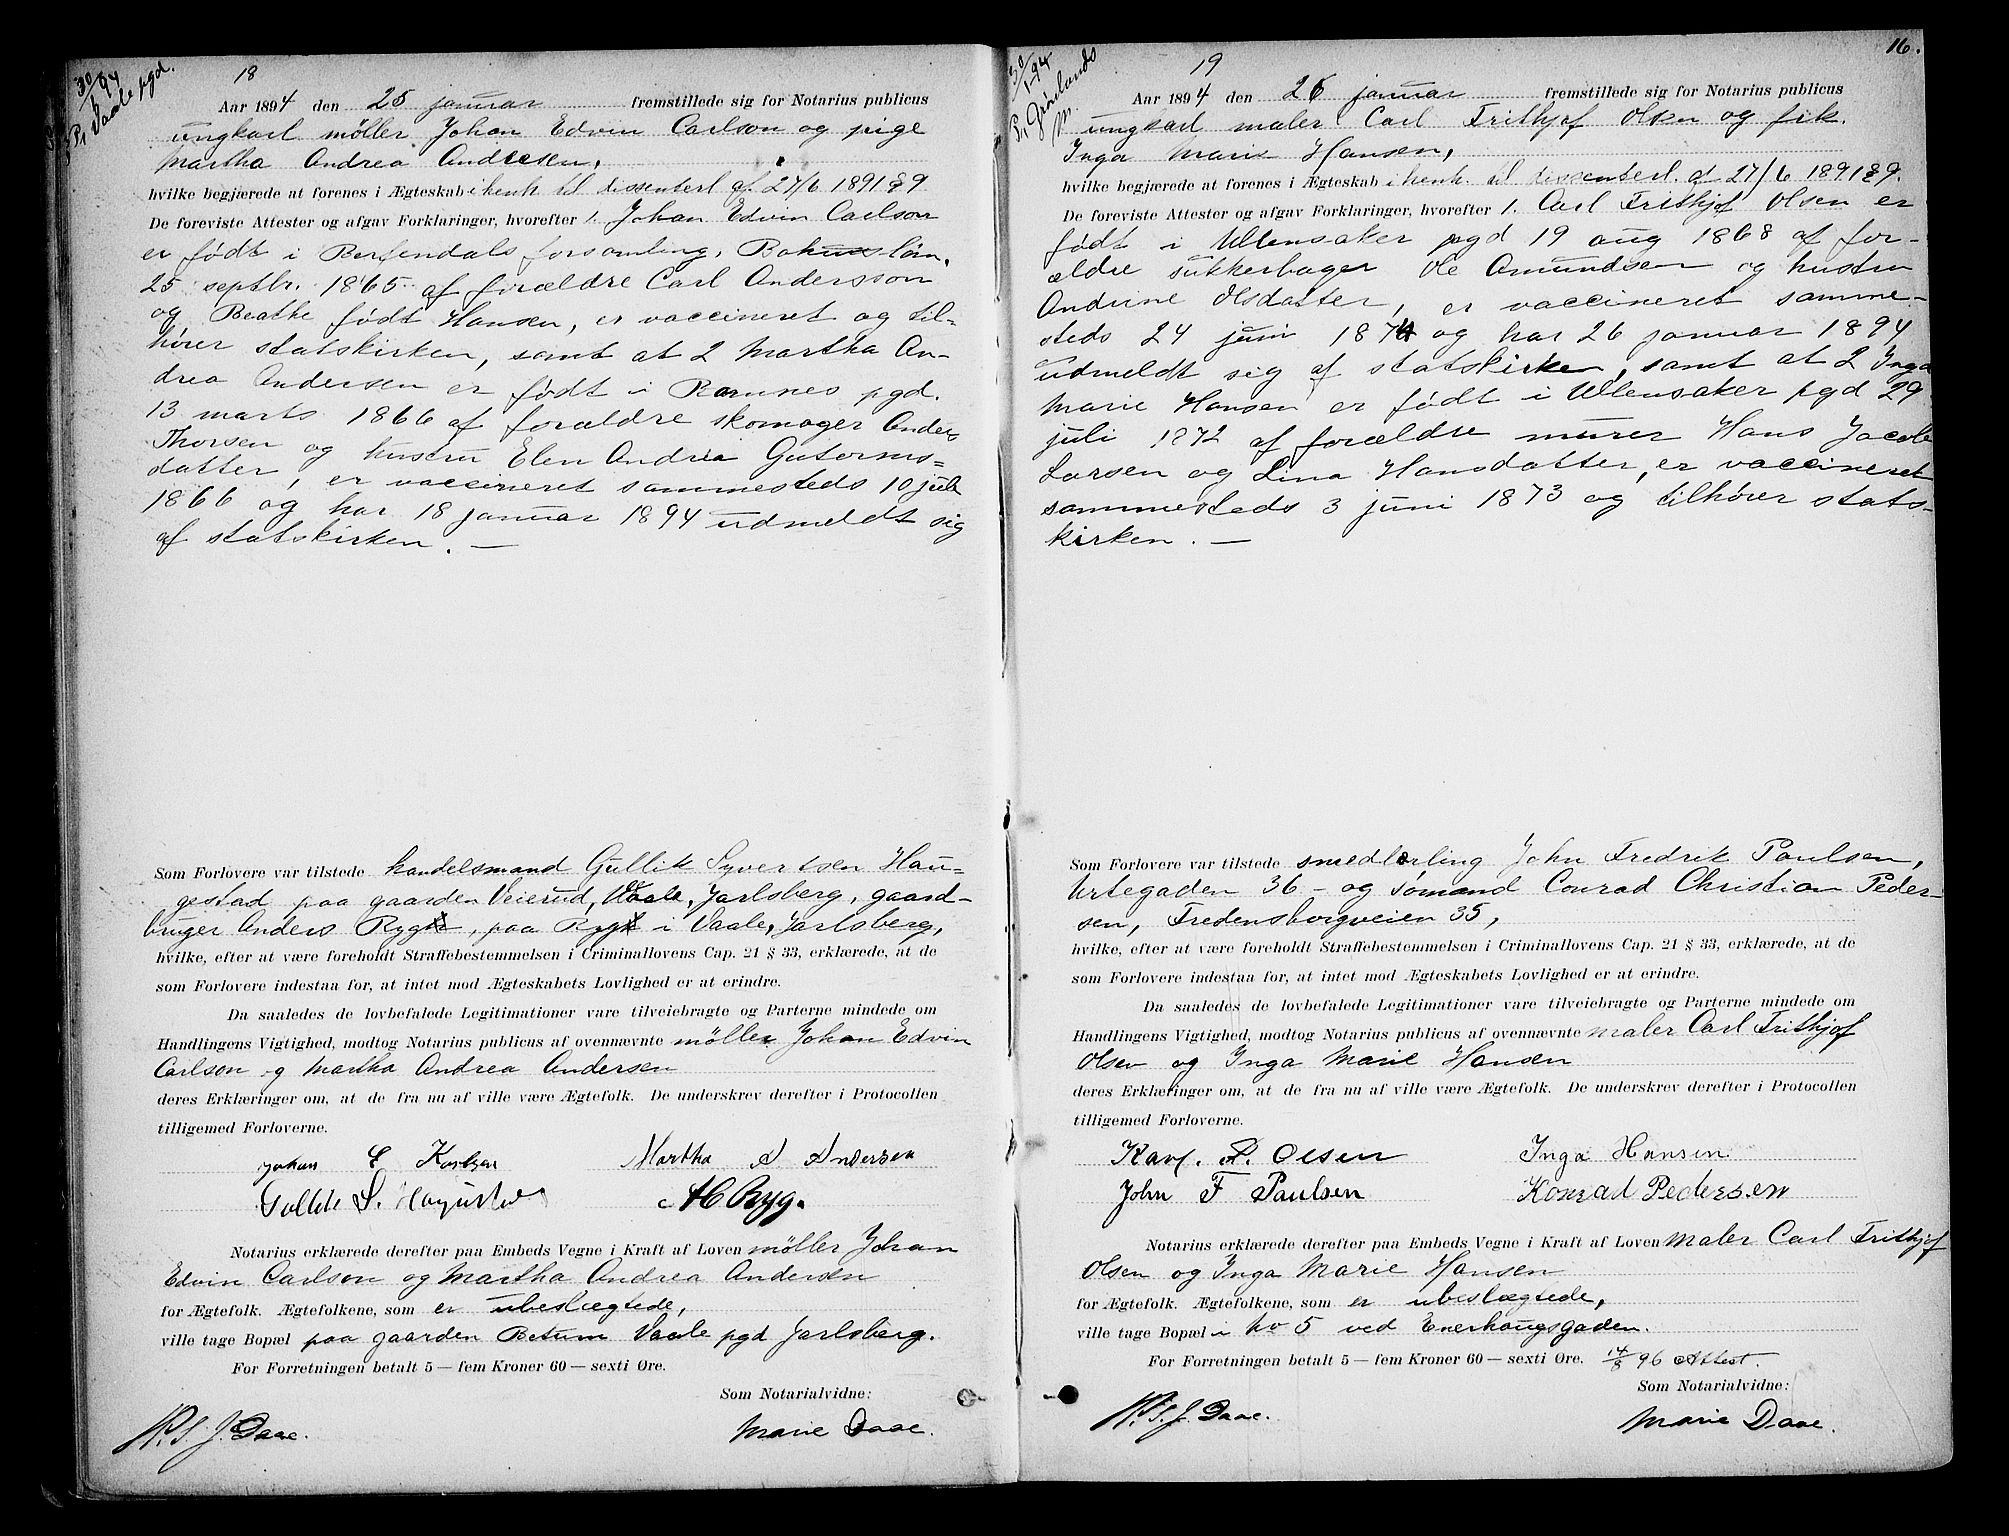 30/1 94
Pr Vaale pgd.
18
Aar 1894 den 25 januar fremstillede sig for Notarius publicus
ungkarl møller Johan Edvin Carlson og pige
Martha Andrea Andresen,
hvilke begjærede at forenes i Ægteskab i henh. til dissenterl. af 27/6 1891 § 9
De foreviste Attester og afgav Forklaringer, hvorefter 1. Johan Edvin Carlson
er født i Berfendals forsamling, Bohuslän,
25 septbr. 1865 af forældre Carl Andersson
og Beathe født Hansen, er vaccineret og til=
hører statskirken, samt at 2 Martha An-
drea Andersen er født i Ramnes pgd.
13 marts 1866 af forældre skomager Anders
Thorsen og hustru Elen Andrea Gutorms=
datter, er vaccineret sammesteds 10 juli
1866 og har 18 januar 1894 udmeldt sig
af statskirken. —
Som Forlovere var tilstede handelsmand Gullik Syvertsen Hau-
gestad paa gaarden Veierud, Vaale, Jarlsberg, gaard-
bruger Anders Ryg, paa Ryg i Vaale, Jarlsberg,
hvilke, efter at være foreholdt Straffebestemmelsen i Criminallovens Cap. 21 § 33, erklærede, at de
som Forlovere indestaa for, at intet mod Ægteskabets Lovlighed er at erindre.
Da saaledes de lovbefalede Legitimationer vare tilveiebragte og Parterne mindede om
Handlingens Vigtighed, modtog Notarius publicus af ovennævnte møller Johan Edvin
Carlson og Martha Andrea Andersen
deres Erklæringer om, at de fra nu af ville være Ægtefolk. De underskrev derefter i Protocollen
tilligemed Forloverne.
Johan E Karlsen Martha A Andersen
S. A C Ryg.
Notarius erklærede derefter paa Embeds Vegne i Kraft af Loven møller Johan
Edvin Carlson og Martha Andrea Andersen
for Ægtefolk. Ægtefolkene, som er ubeslægtede,
ville tage Bopæl paa gaarden Betum Vaale pgd Jarlsberg.
For Forretningen betalt 5 — fem Kroner 60 — sexti Øre.
Som Notarialvidne:
J. Daae. Marie Daae.
16.
30/1 94
Pr Grønlands
m.
19
Aar 1894 den 26 januar fremstillede sig for Notarius publicus
ungkarl maler Carl Frithjof Olsen og frk.
Inga Marie Hansen,
hvilke begjærede at forenes i Ægteskab i henh. til dissenterl. af 27/6 1891 § 9.
De foreviste Attester og afgav Forklaringer, hvorefter 1. Carl Frithjof Olsen er
født i Ullensaker pgd 19 aug 1868 af for-
ældre sukkerbager Ole Amundsen og hustru
Andrine Olsdatter, er vaccineret samme-
steds 24 juni 1874 og har 26 januar 1894
udmeldt sig af statskirken, samt at 2 Inga
Marie Hansen er født i Ullensaker pgd 29
juli 1872 af forældre murer Hans Jacob
Larsen og Lina Hansdatter, er vaccineret
sammesteds 3 juni 1873 og tilhører stats-
kirken. —
Som Forlovere var tilstede smedlærling John Fredrik Paulsen,
Urtegaden 36 - og sømand Conrad Christian Peder-
sen, Fredensborgveien 35,
hvilke, efter at være foreholdt Straffebestemmelsen i Criminallovens Cap. 21 § 33, erklærede, at de
som Forlovere indestaa for, at intet mod Ægteskabets Lovlighed er at erindre.
Da saaledes de lovbefalede Legitimationer vare tilveiebragte og Parterne mindede om
Handlingens Vigtighed, modtog Notarius publicus af ovennævnte maler Carl Frithjof
Olsen og Inga Marie Hansen
deres Erklæringer om, at de fra nu af ville være Ægtefolk. De underskrev derefter i Protocollen
tilligemed Forloverne.
Karl. F. Olsen Inga Hansen
John F Paulsen Konrad Pedersen
Notarius erklærede derefter paa Embeds Vegne i Kraft af Loven maler Carl Frithjof
Olsen og Inga Marie Hansen
for Ægtefolk. Ægtefolkene, som er ubeslægtede,
ville tage Bopæl i no 5 ved Enerhaugsgaden.
For Forretningen betalt 5 — fem Kroner 60 — sexti Øre. 14/8 96 Attest.
Som Notarialvidne:
J. Daae. Marie Daae.